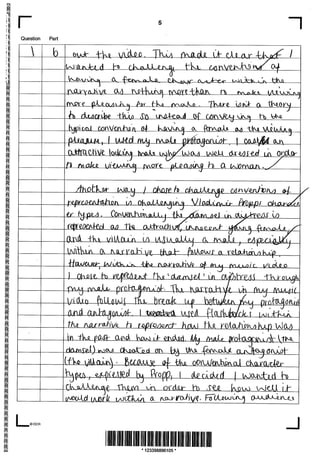 5
Question Part
1 b out the video. This made it clear that I
wanted to challenge the conventions of
having a female character within the
narrative as nothing more than to make viewing
more pleasing for the male. There isnt a theory
to describe this so instead of conveying to the
typical convention of having a female as the viewing
pleasure, I used my male protagonist. I cast an
attractive looking male who was well dressed in order
to make viewing more pleasing to a woman.
Another way I chose to challenge conventions of
representation is challenging Vladimir Propps charact
er types. Conventionally the damsel in distress is
represented as the attractive, innocent young female
and the villain is usually a male, especially
within a narrative that follows a relationship.
However, within the narrative of my music video
I chose to represent the 'damsel' in distress through
my male protagonist. The narrative in my music
video follows the break up between my protagonist
and antagonist. I used flashbacks within
the narrative to represent how the relationship was
in the past and how it ended. My male protagonist (the
damsel) was cheated on by the female antagonist
(the villain). Because of the conventional character
types, expressed by Propp, I decided I wanted to
challenge them in order to see how well it
would work within a narrative. Following audience
* 1233598896105 *